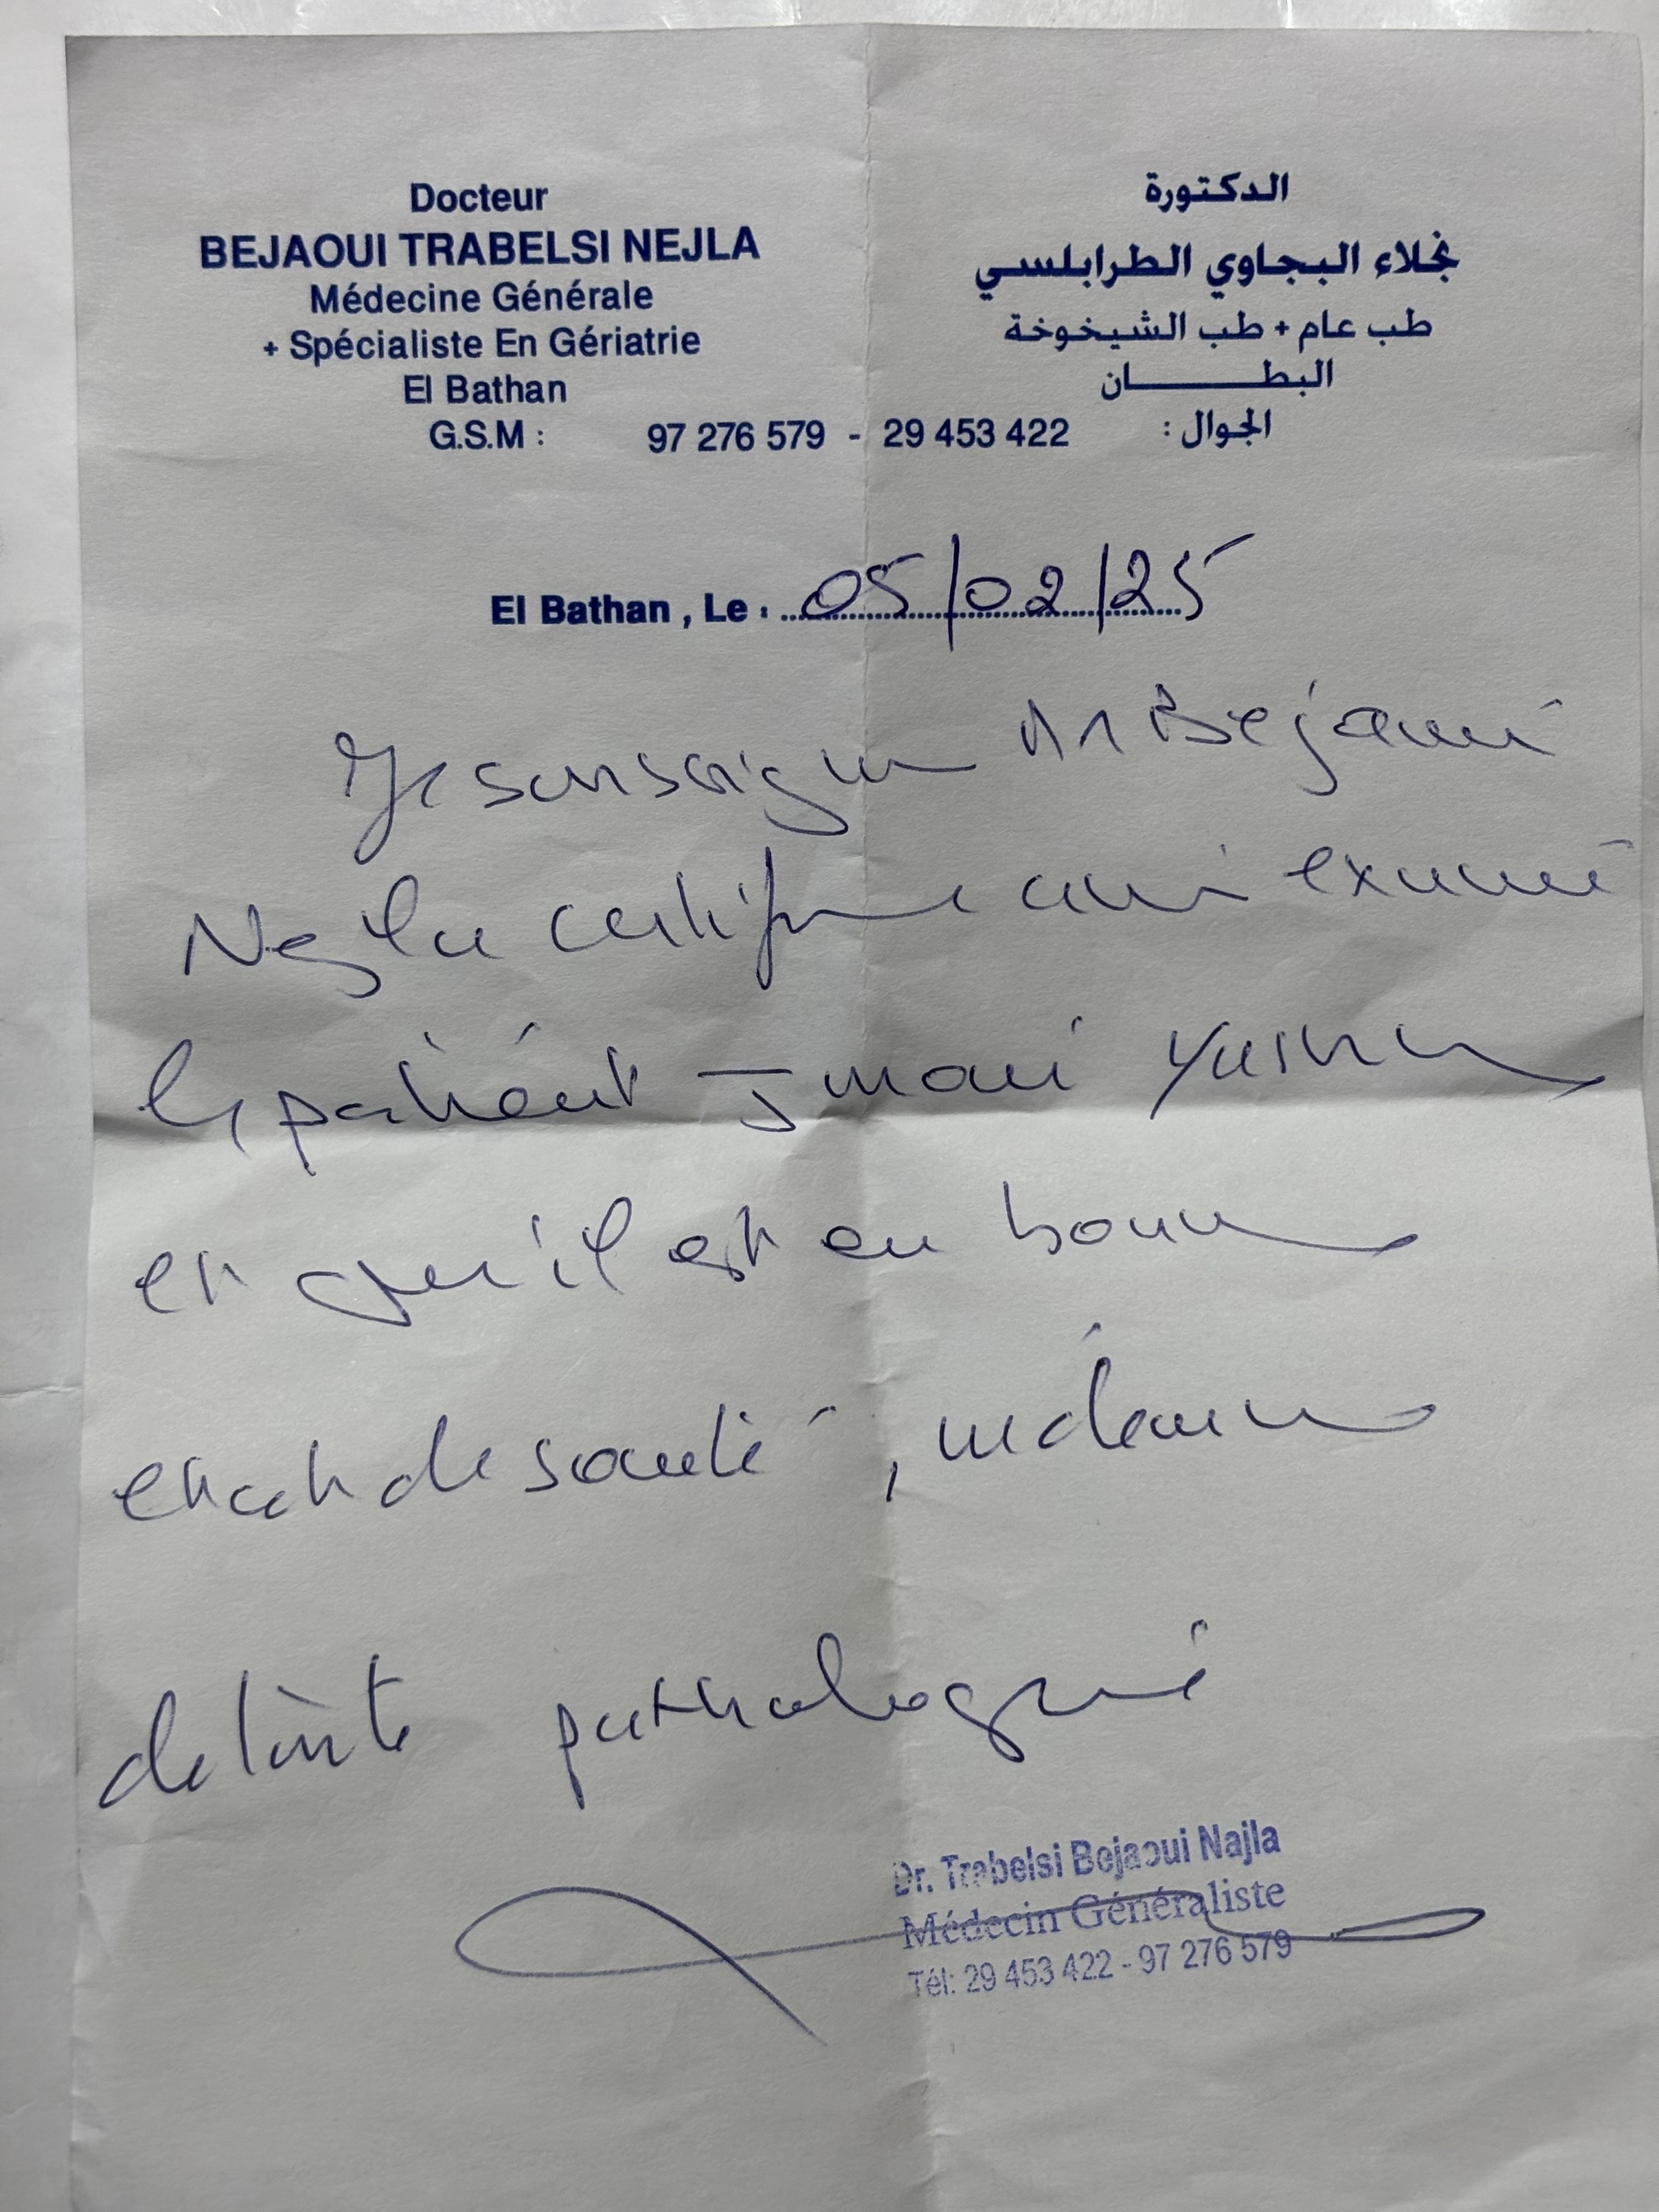 Docteur
BEJAOUI TRABELSI NEJLA
Médecine Générale
+ Spécialiste En Gériatrie
El Bathan
G.S.M : 97 276 579 - 29 453 422 الجوال :
الدكتورة
نجلاء البجاوي الطرابلسي
طب عام + طب الشيخوخة
البطـــــــان
El Bathan , Le : 05/02/25
Je soussigné Dr Bejaoui
Nejla certifie avoir examiné
le patient Jmaii
et qu'il est en bonne
état de santé, indemne
de toute pathologie
Dr. Trabelsi Bejaoui Najla
Médecin Généraliste
Tél: 29 453 422 - 97 276 579